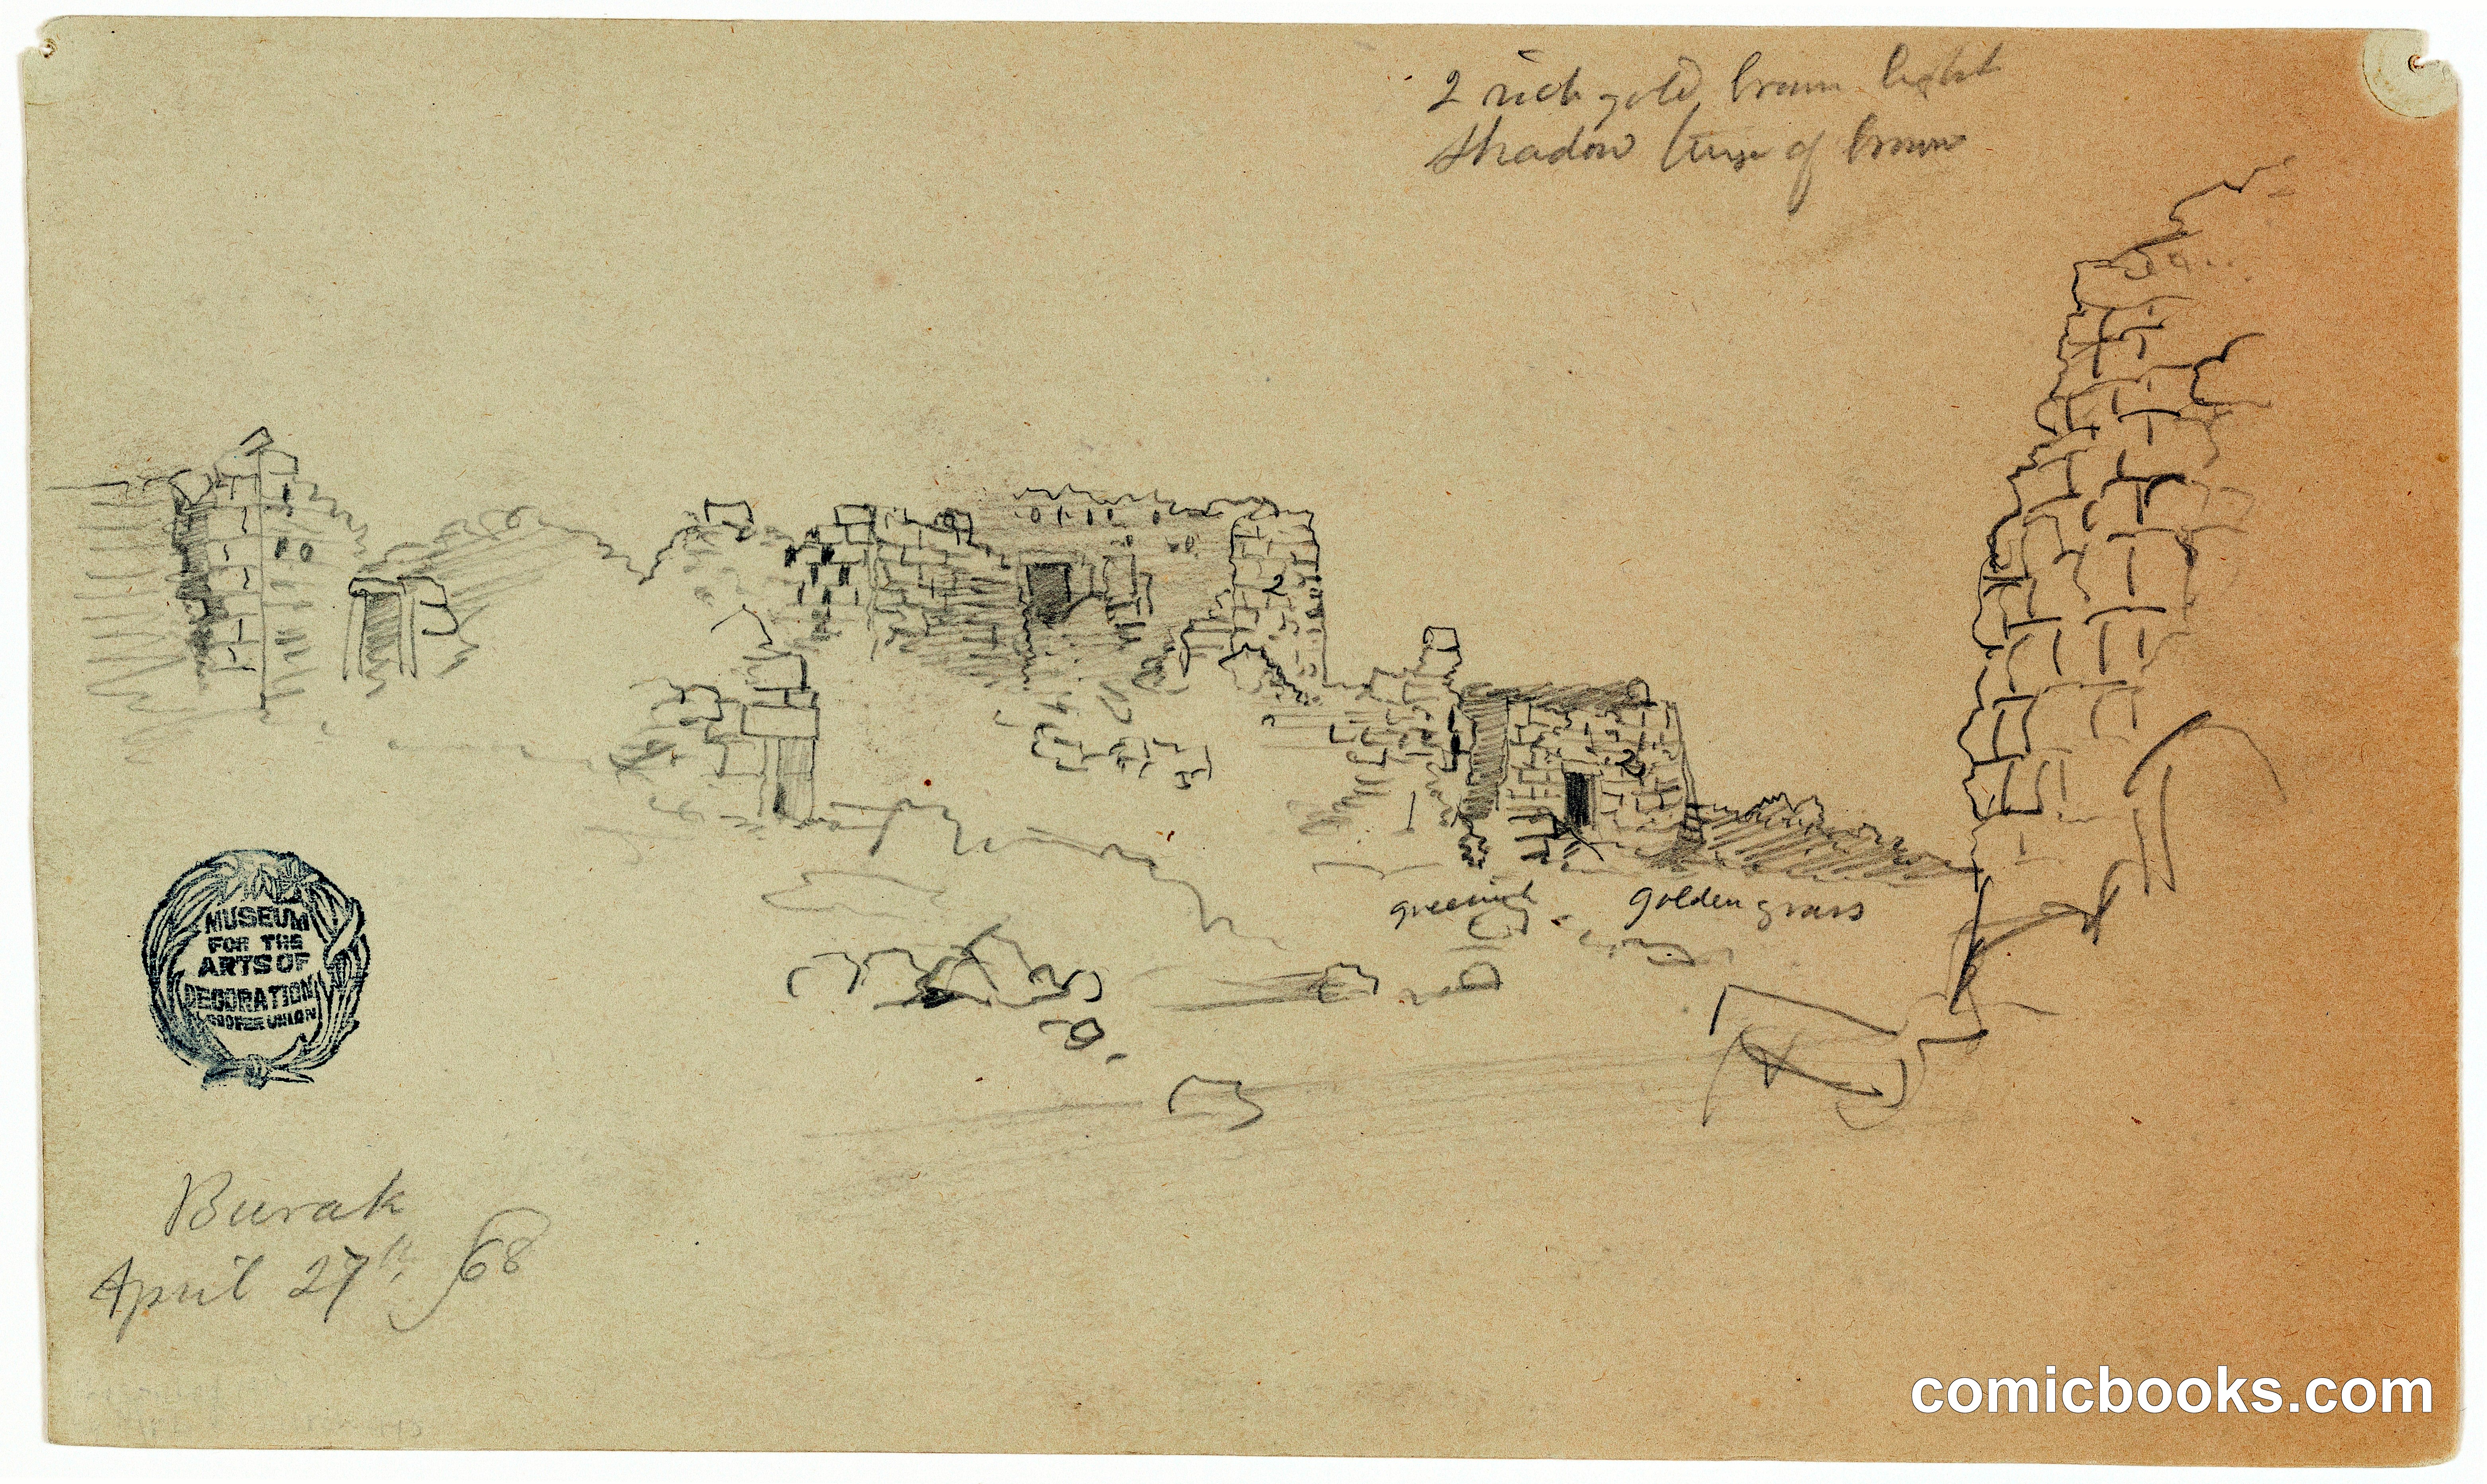 2 rich gold, brown light
shadow tinge of brown
2
2
greenish
golden grass
MUSEUM
FOR THE
ARTS OF
DECORATION
COOPER UNION
Burak
April 27th, 68
comicbooks.com